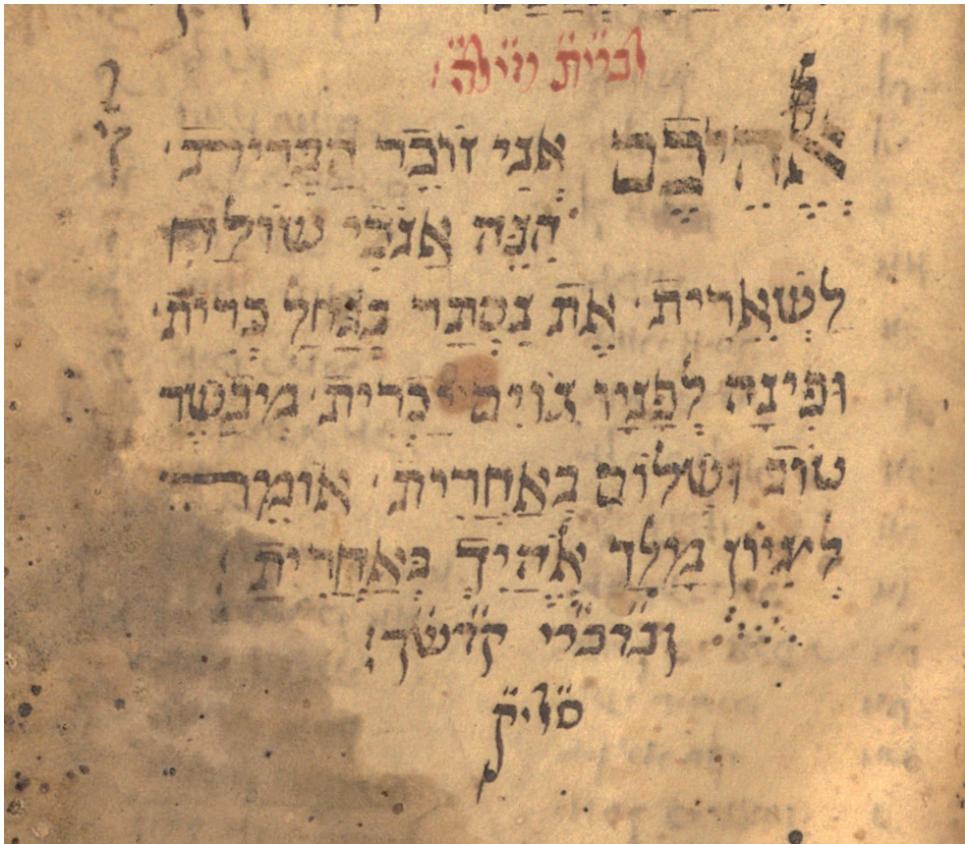 לברית מילה
אלהיכם אני זוכר הברית
הנה אנכי שולח
לשארית את נסתר בנחל כרית
ופינה לפניו גוים יכרית מבשר
טוב ושלום באחרית אומר
לציון מלך אלהיך באחרית
ובדברי קדשך
סליק